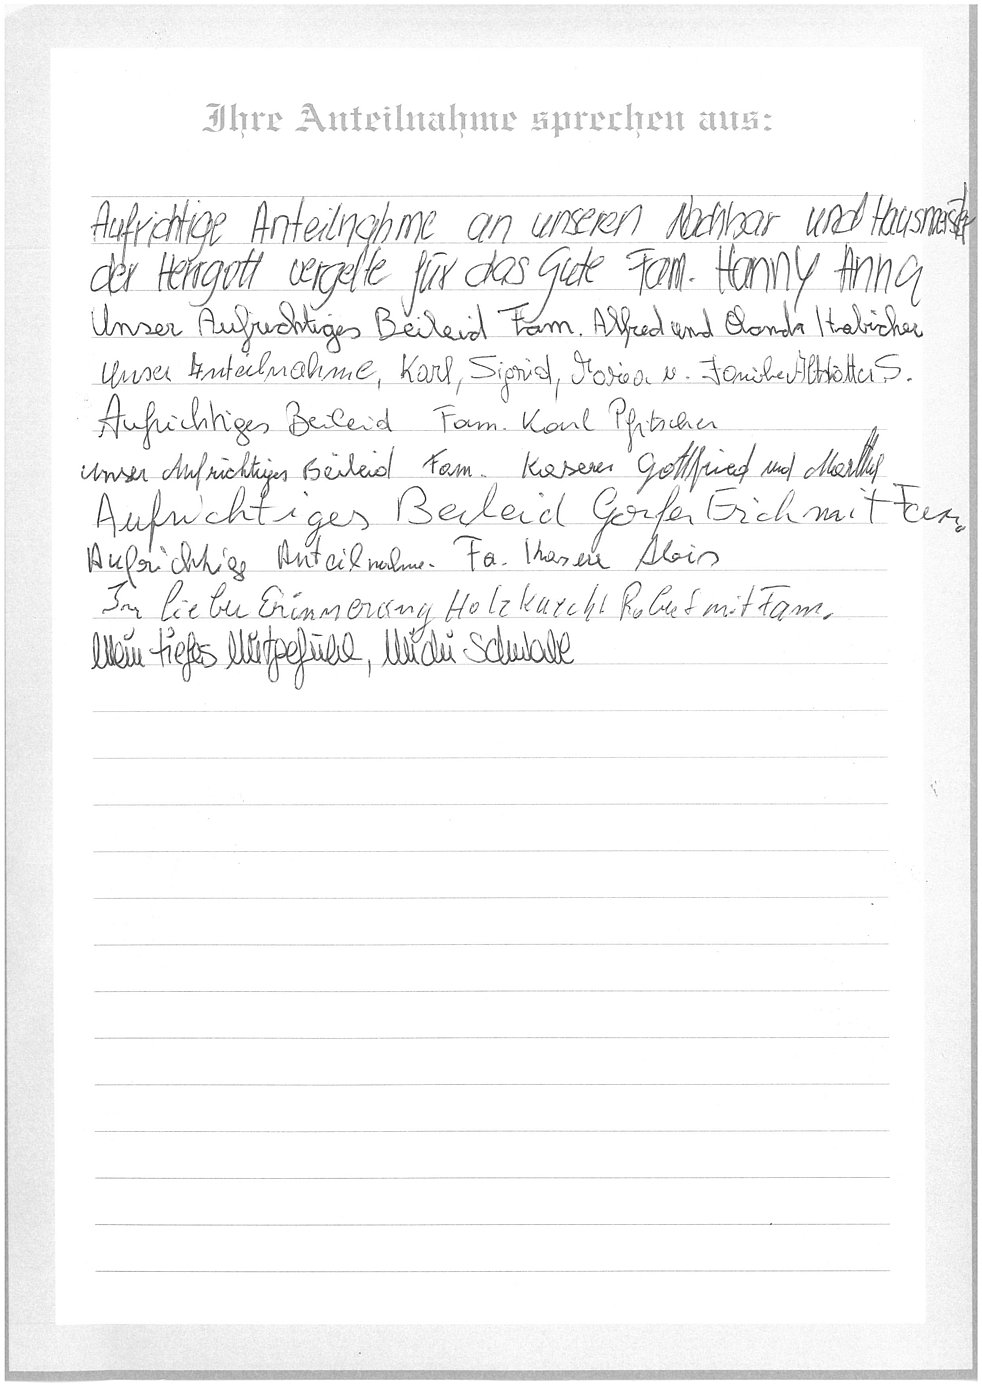 Ihre Anteilnahme sprechen aus:
Aufrichtige Anteilnahme an unseren Nachbar und Hausmeister
der Herrgott vergelte für das Gute Fam. Hanny Anna
Unser Aufrichtiges Beileid Fam. Alfred und
Unser Anteilnahme, Karl, Sigrid, Maria u. Familie S.
Aufrichtiges Beileid Fam. Karl Pfitscher
Unser Aufrichtiges Beileid Fam. Kaserer Gottfried und
Aufrichtiges Beileid Gorfer Erich mit Fam.
Aufrichtige Anteilnahme. Fa. Alois
In lieber Erinnerung Holzknecht Robert mit Fam.
Mein tiefes Mitgefühl,